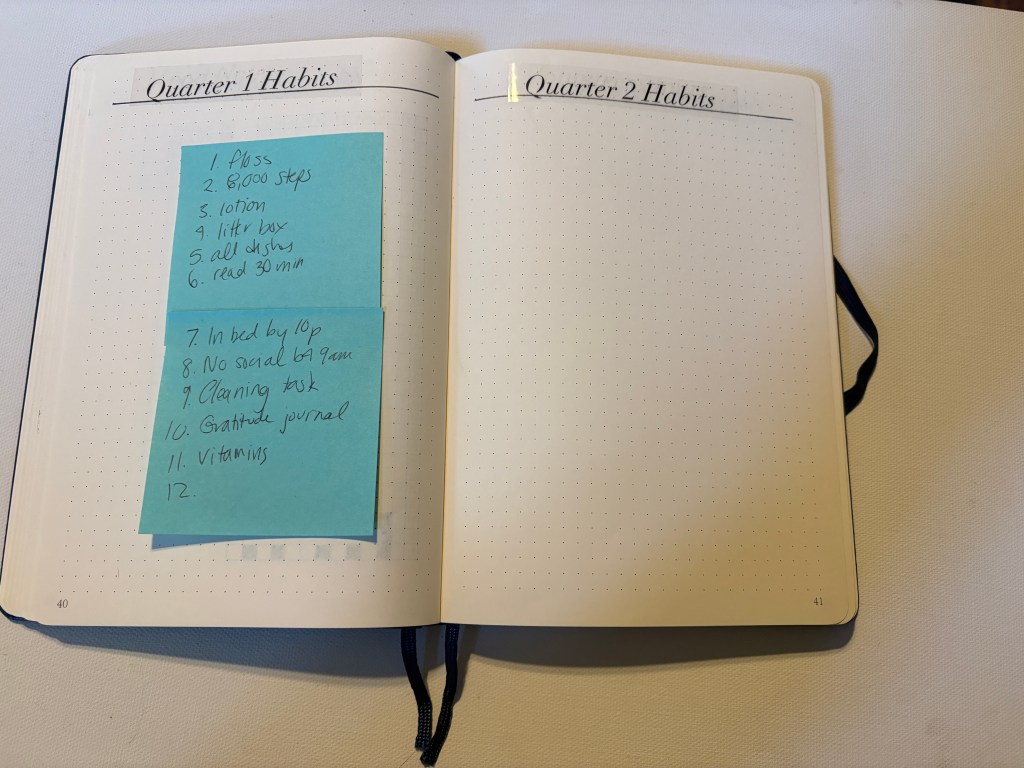 Quarter 1 Habits
1. floss
2. 8,000 steps
3. lotion
4. litter box
5. all dishes
6. read 30 min
7. In bed by 10p
8. No social b4 9am
9. Cleaning task
10. Gratitude journal
11. Vitamins
12.
40
Quarter 2 Habits
41